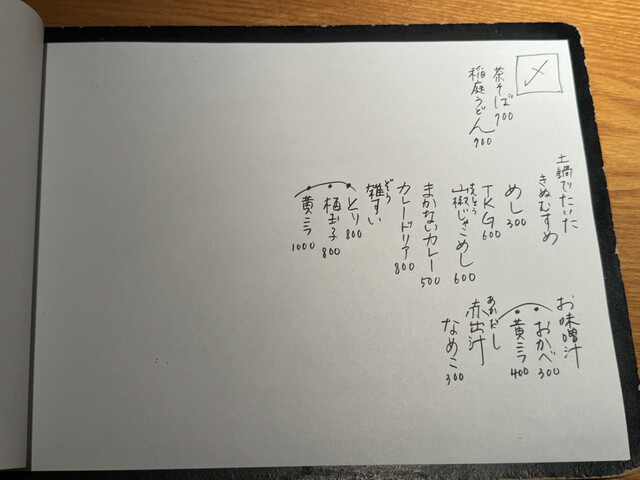 〆
茶そば 700
稲庭うどん 700
土鍋でたいた
きぬむすめ
めし 300
TKG 600
山椒じゃこめし 600
さんしょう
まかないカレー 500
カレードリア 800
雑すい
ぞう
とり 800
栃玉子 800
黄ニラ 1000
お味噌汁
おかべ 300
黄ニラ 400
赤出汁
あかだし
なめこ 300